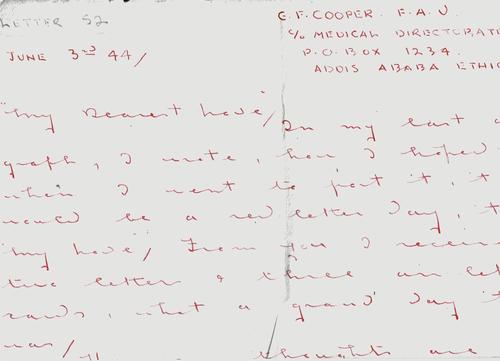 LETTER 52
C. F. COOPER. F. A. U
C/o MEDICAL DIRECTORATE
P. O. BOX 1234.
ADDIS ABABA ETHIO
JUNE 3rd 44/
"My Dearest Love,
In my last a
graph, I wrote, how I hoped
when I went to post it, it
would be a red letter day, it
My Love/ From you I receiv
two letter & three air let
cards, what a grand day it
was/
thoughts are